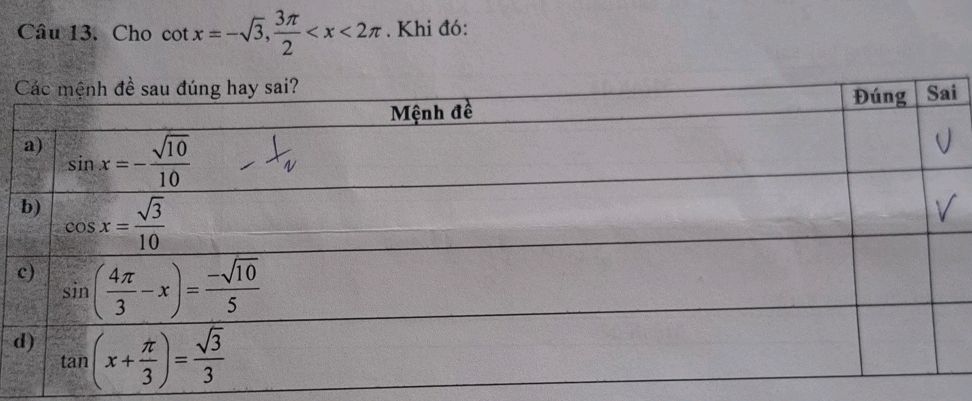 Câu 13. Cho cot x = -√3, 3π/2 < x < 2π. Khi đó:
Các mệnh đề sau đúng hay sai?
Mệnh đề Đúng Sai
a) sin x = -√10/10
b) cos x = √3/10 V
c) sin(4π/3 - x) = -√10/5
d) tan(x + π/3) = √3/3